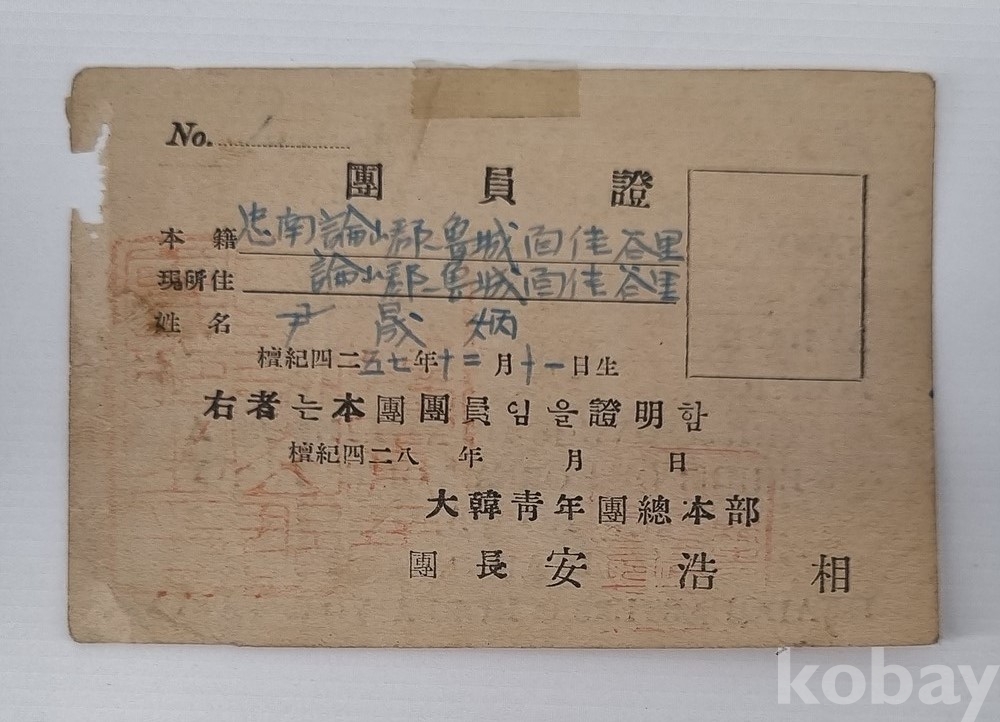 No.
團員證
本籍 忠南論山郡魯城面佳谷里
現所住 論山郡魯城面佳谷里
姓名 尹晟炳
檀紀四二五七年十二月十一日生
右者는本團團員임을證明함
檀紀四二八 年 月 日
大韓靑年團總本部
團長安浩相
kobay